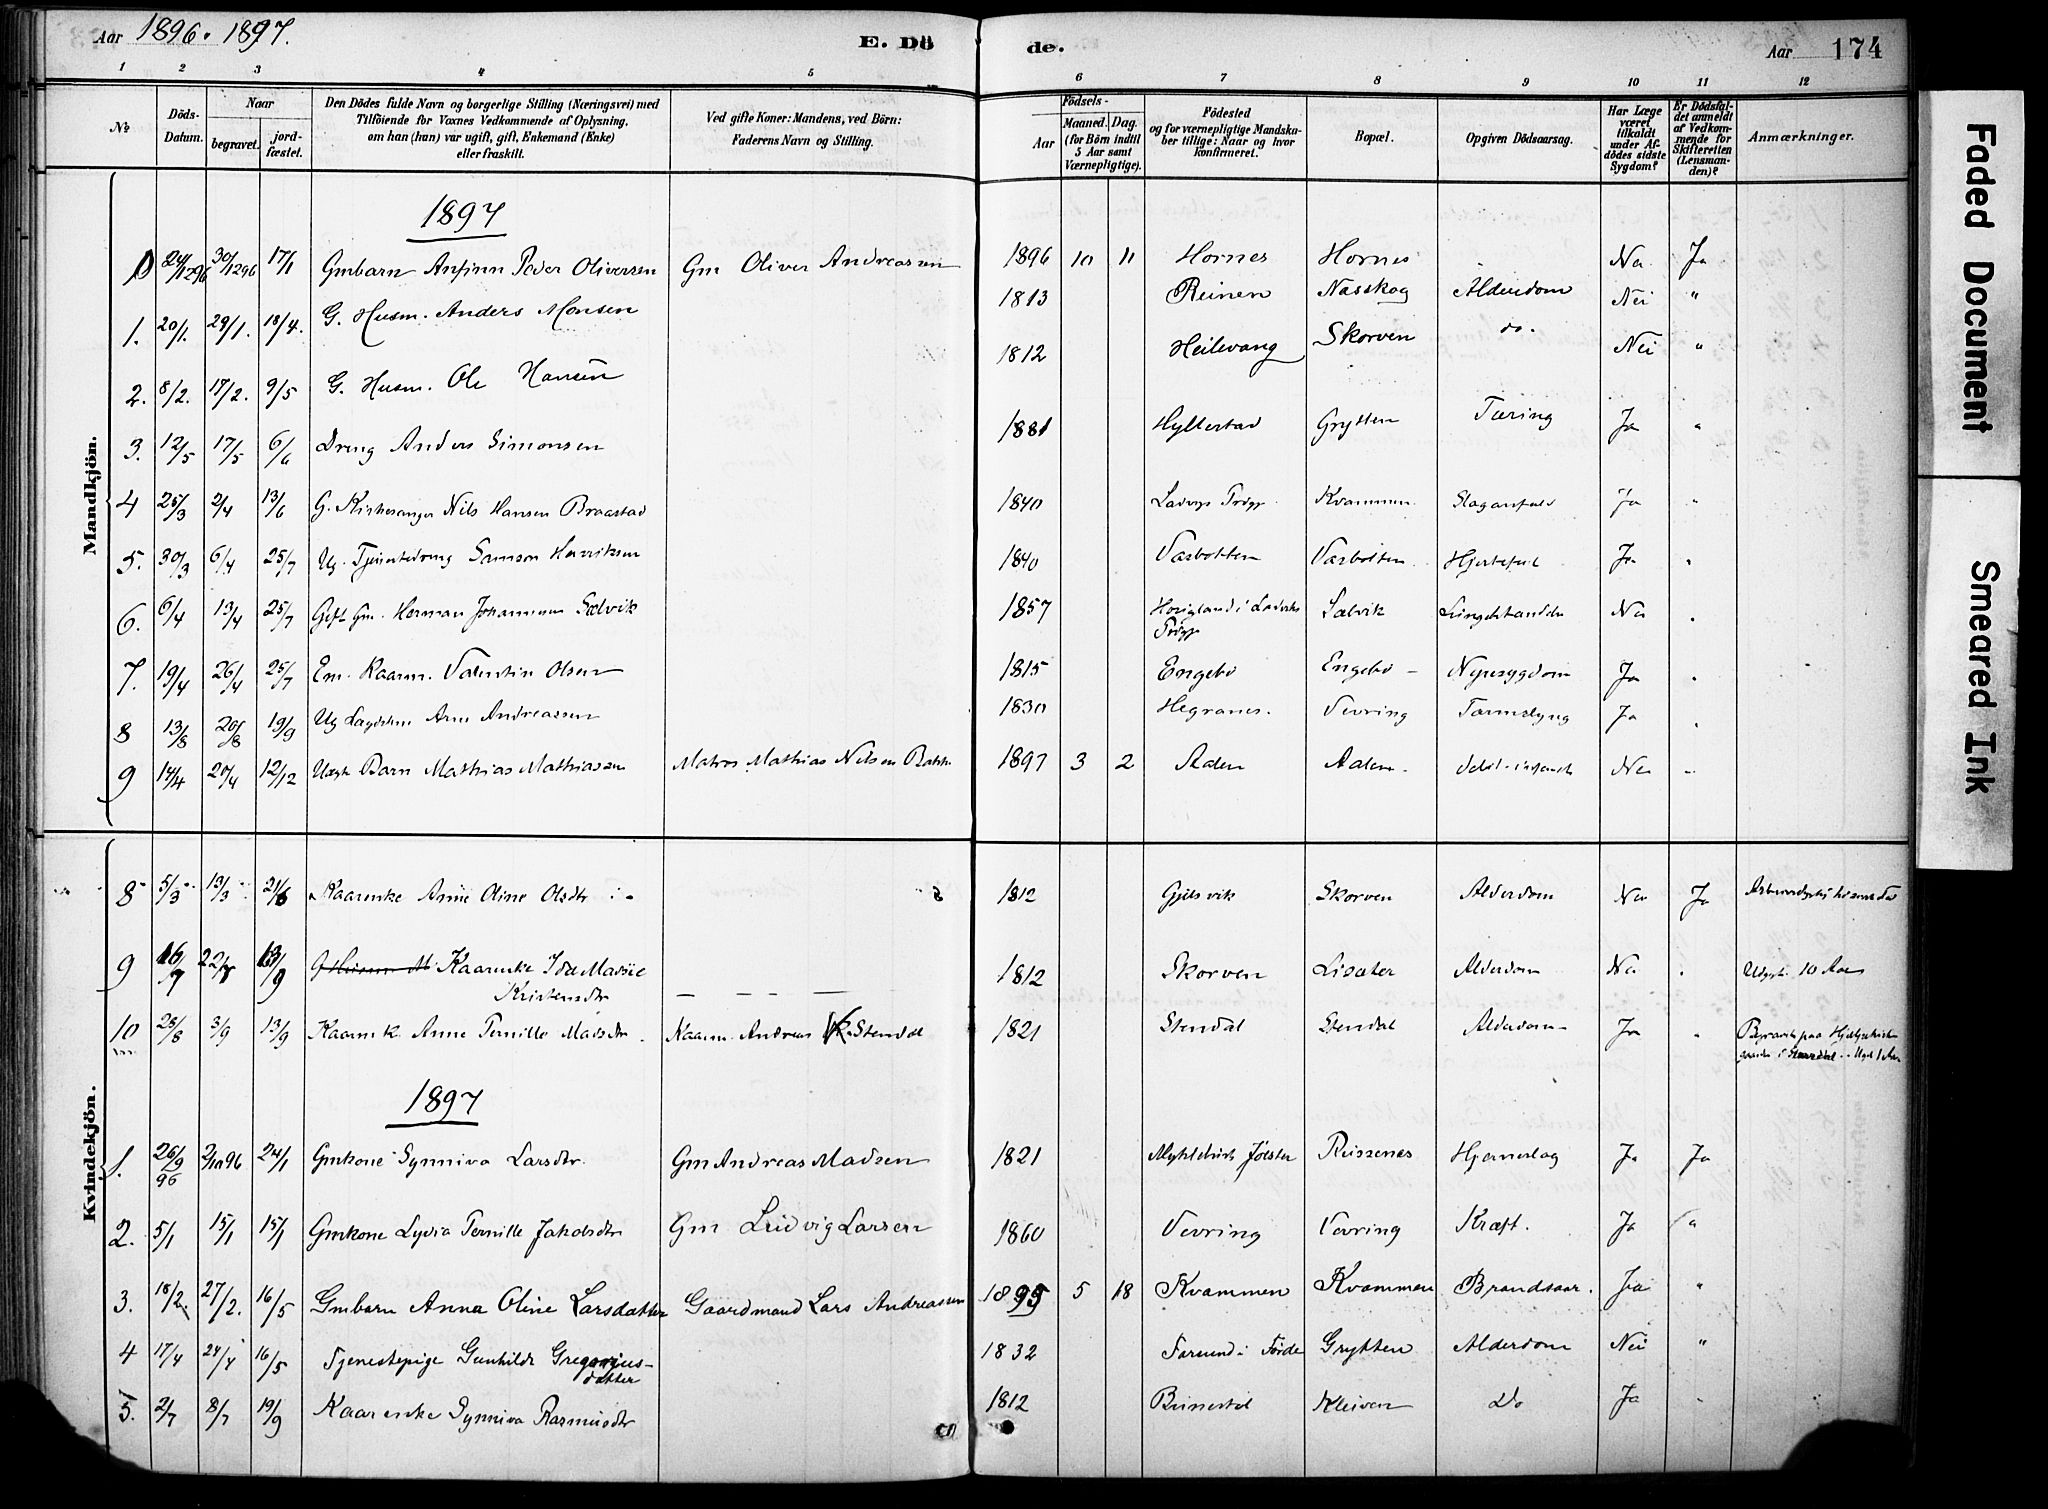 Aar 1896. 1897.
E. Dö
de.
Aar 174
1 2 3 4 5
6 7 8 9 10 11 12
No.
Döds-
Datum.
Naar
begravet.
jord-
fæstet.
Den Dödes fulde Navn og borgerlige Stilling (Næringsvei) med
Tilföiende for Voxnes Vedkommende af Oplysning,
om han (hun) var ugift, gift, Enkemand (Enke)
eller fraskilt.
Ved gifte Koner: Mandens, ved Börn:
Faderens Navn og Stilling.
Födsels-
Aar
Maaned. Dag.
(for Börn indtil
5 Aar samt
Værnepligtige).
Födested
og for værnepligtige Mandska-
ber tillige: Naar og hvor
konfirmeret.
Bopæl.
Opgiven Dödsaarsag.
Har Læge
været
tilkaldt
under Af-
dödes sidste
Sygdom?
Er Dödsfal-
det anmeldt
af Vedkom-
mende for
Skifteretten
(Lensman-
den)?
Anmærkninger.
Mandkjön.
1897
30/1296 17/1 Gmbarn Anfinn Peder Oliversen Gm Oliver Andreassen 1896 10 11 Hornes Hornes Ja
1. 20/1. 29/1. 18/4. G. Husm. Anders Monsen 1813 Reinen Nasskog Alderdom Nei "
2. 8/2. 17/2. 9/5 G. Husm. Ole Hansen 1812 Heilevang Skorven do. Nei "
3. 12/5 17/5 6/6 Dreng Anders Simonsen 1881 Hyllestad Grytten Tæring Ja "
4 25/3 2/4 13/6 G. Kirkesanger Nils Hansen Braastad 1840 Kvammen Ja "
5. 30/3 6/4 25/7 Ug. Samson Henriksen 1840 Varbotten Varbotten Ja "
6. 6/4 13/4 25/7 Gift Gm. Herman Johannesen Sælvik 1857 Sælvik
7. 19/4 26/4 25/7 Em. Kaarm. Valentin Olsen 1815 Engebø Engebø Nyresygdom Ja
8 13/8 20/8 19/9 Ug Arne Andreassen 1830 Hegranes. Vevring Tarmslyng Ja
9 14/4 20/4 12/12 Barn Mathias Mathiassen Matros Mathias Nilsen 1897 3 2 Aalen Aalen
Kvindekjön.
8 5/3 13/3 Kaarenke Anne Oline Olsdtr 1812 Gjelsvik Skorven Alderdom Ja
9 Kaarenke Ida
Kristensdtr 1812 Skorven Lisæter Alderdom 10 Aar
10 25/8 3/9 13/9 Kaarmk. Anne Pernille Madsdtr Kaarm. Andreas Stendal 1821 Stendal Stendal Alderdom Ja
1897
1. 26/9 96 2/10 96 24/1 Gmkone Synniva Larsdtr. Gm Andreas Madsen 1821 Jølster Russenes Ja Ja
2. 5/1 15/1 15/1 Gmkone Lydia Pernille Jakobsdtr Gm Ludvig Larsen 1860 Vevring Vevring Kræft. Ja "
3. 18/2. 27/2. 16/5 Gmbarn Anna Oline Larsdatter Gaardmand Lars Andreassen 1895 5 18 Kvammen Kvammen Brandsaar. Ja "
4 17/4 24/4 16/5 Tjenestepige Gunhilde Gregorius-
datter 1832 Førde Grytten Alderdom Nei "
5. 2/7 8/7 19/9 Kaarenke Synniva Rasmusdtr 1812 Kleiven Do Ja
Faded Document
Smeared Ink